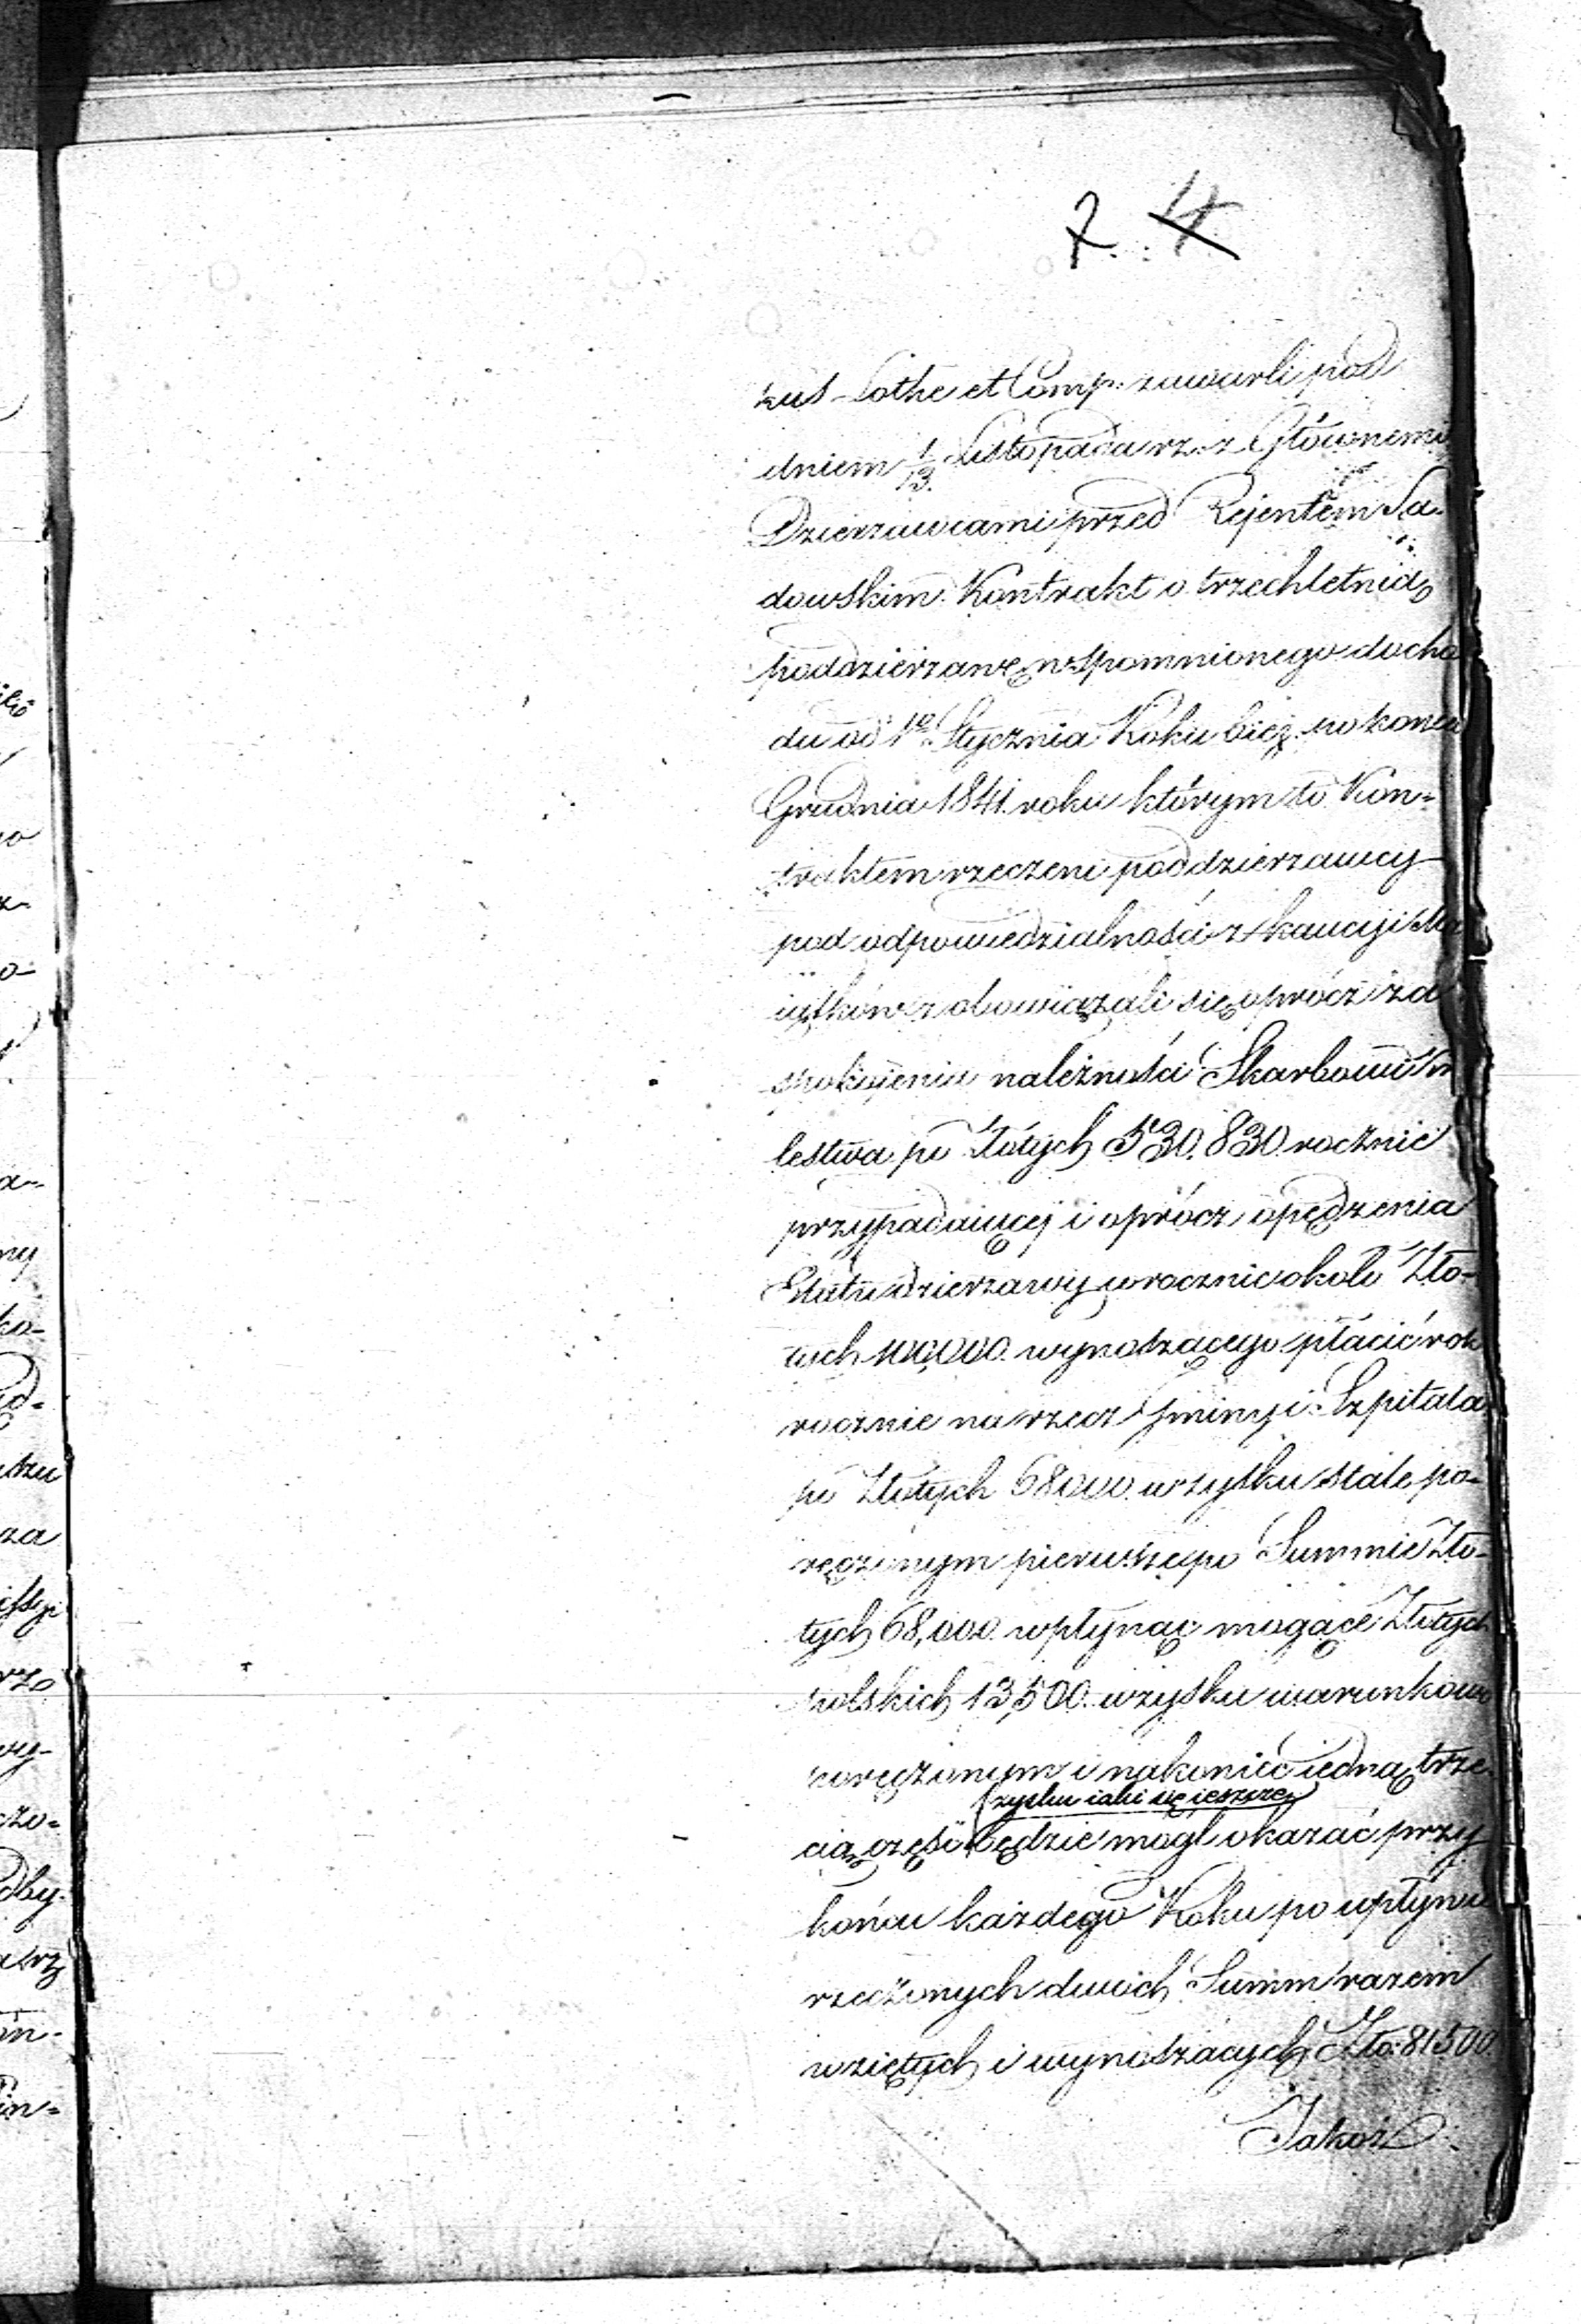 7. 4
kus Lothe et Comp: zawarli pod
dniem 1/13. Listopada rz. z Głównemi
Dzierzawcami przed Rejentem Sa-
dowskim Kontrakt o trzechletnią
poddzierzawę wspomnionego docho
du od 1go Stycznia Roku bież. do końca
Grudnia 1841 roku którym to Kon-
traktem rzeczeni poddzierzawcy
pod odpowiedzialnością z kaucyi i Ma
iątków zobowiązali się oprócz za
spokojenia należności Skarbowi
lestwa po Złotych 530,830 rocznie
przypadaiącej i oprócz opędzenia
Etatu dzierzawy rocznie około Zło-
tych 100,000. wynoszącego płacić rok
rocznie na rzecz Gminy i Szpitala
po Złotych 68000 w zysku stale po-
ręczonym pierwsze po Summie Zło-
tych 68,000. wpłynąć mogące Złotych
polskich 13,500. w zysku warunkowo
poręczonym i nakoniec iedną trze
zysku iaki się ieszcze
cią część będzie mógł okazać przy
końcu każdego Roku po upłynie
rzeczonych dwóch Summ razem
wziętych i wynoszących Zło: 81500.
Jakoż